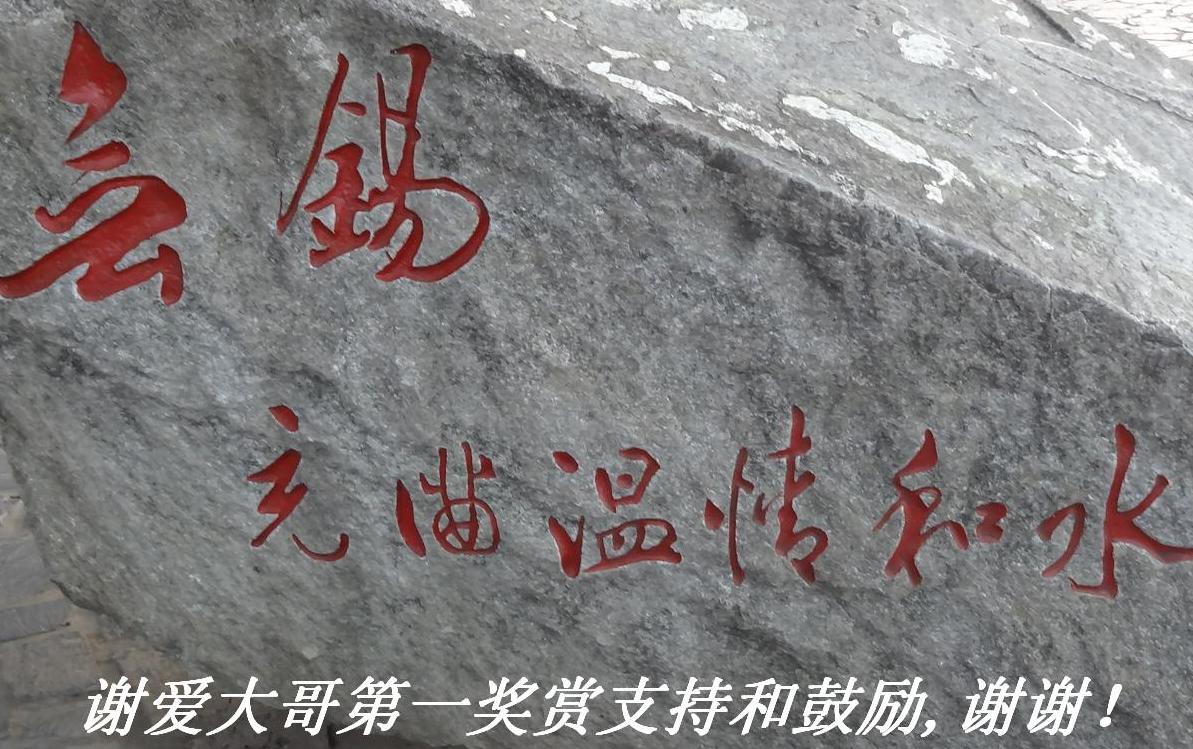 無錫
充满温情和水
谢爱大哥第一奖赏支持和鼓励,谢谢！